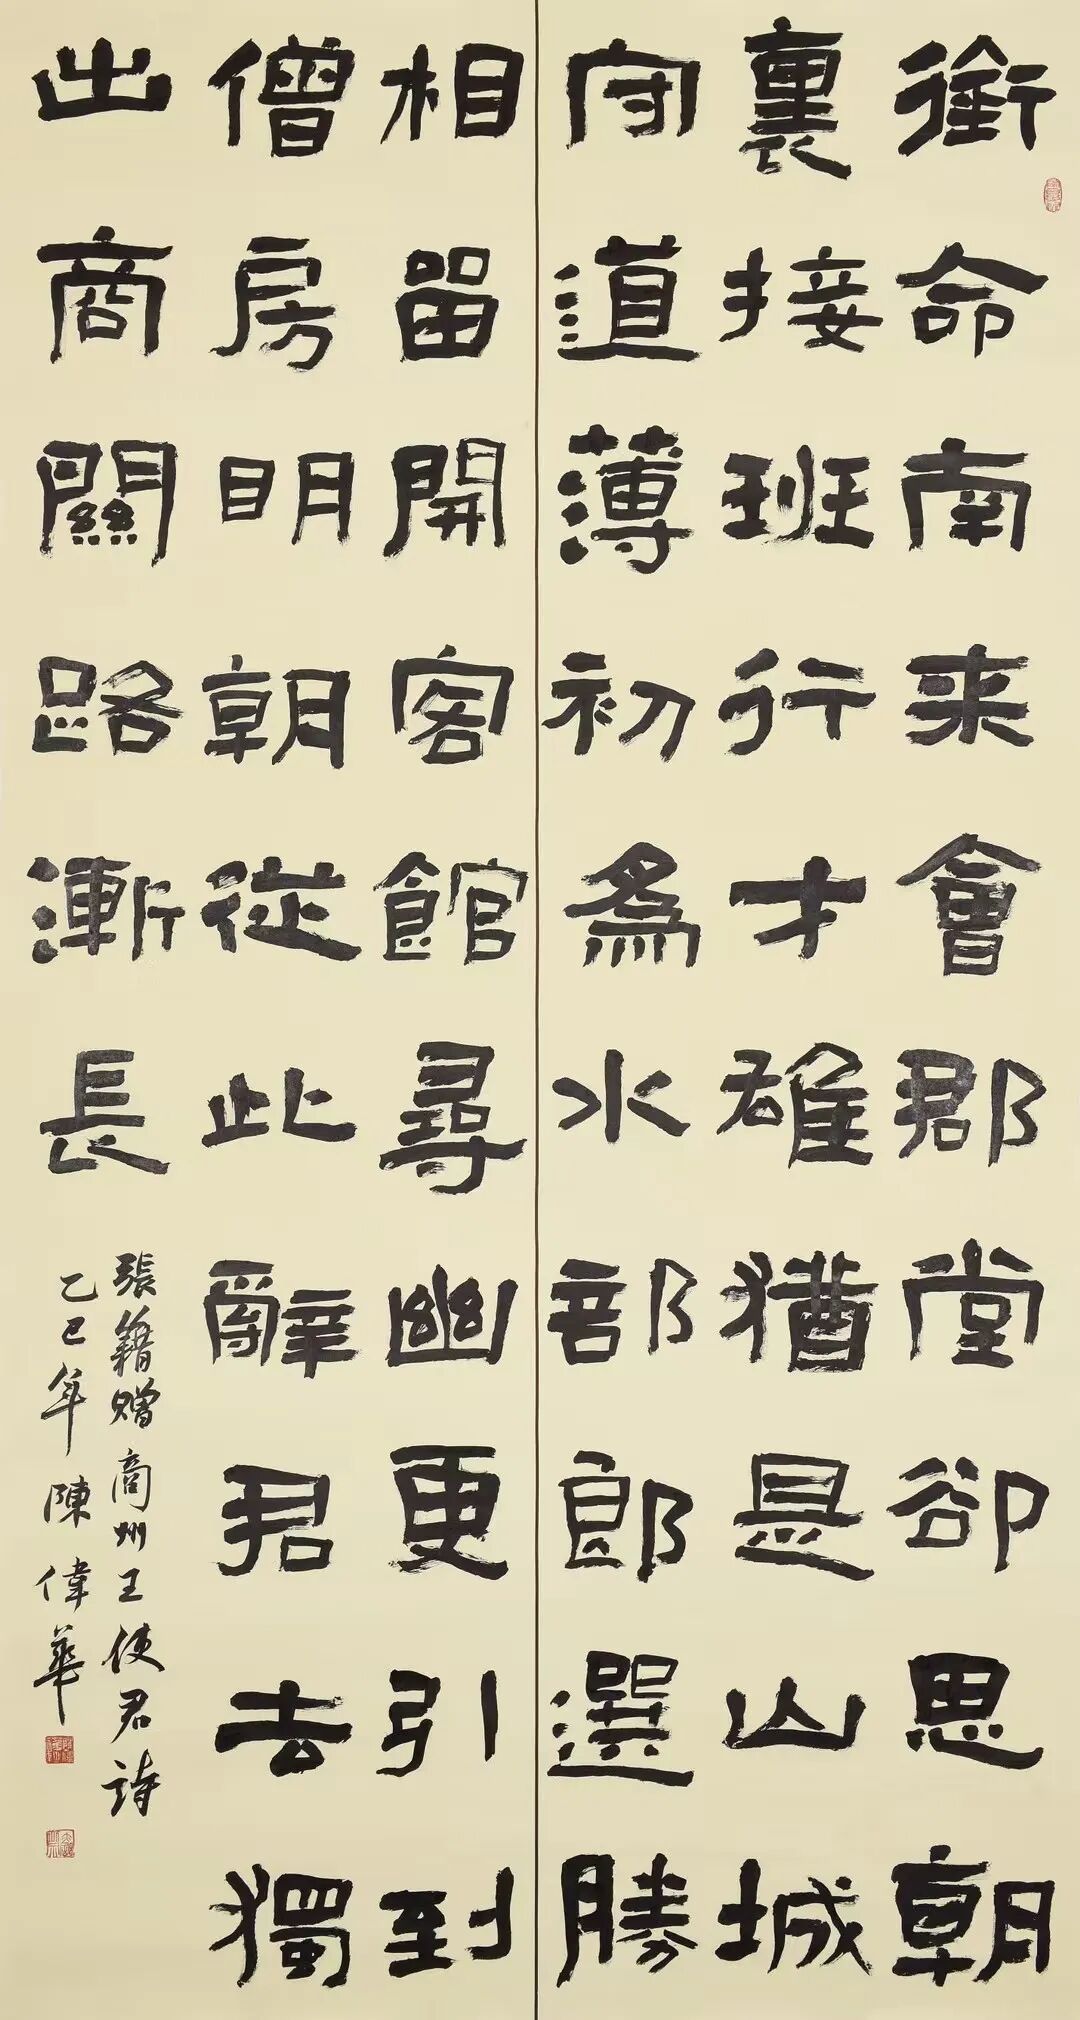 銜命南來會郡堂卻思朝
裏接班行才雄猶是山城
守道薄初為水部郎選勝
相留開客館尋幽更引到
僧房明朝從此辭君去獨
出商關路漸長
張籍贈商州王使君詩
乙巳年陳偉華